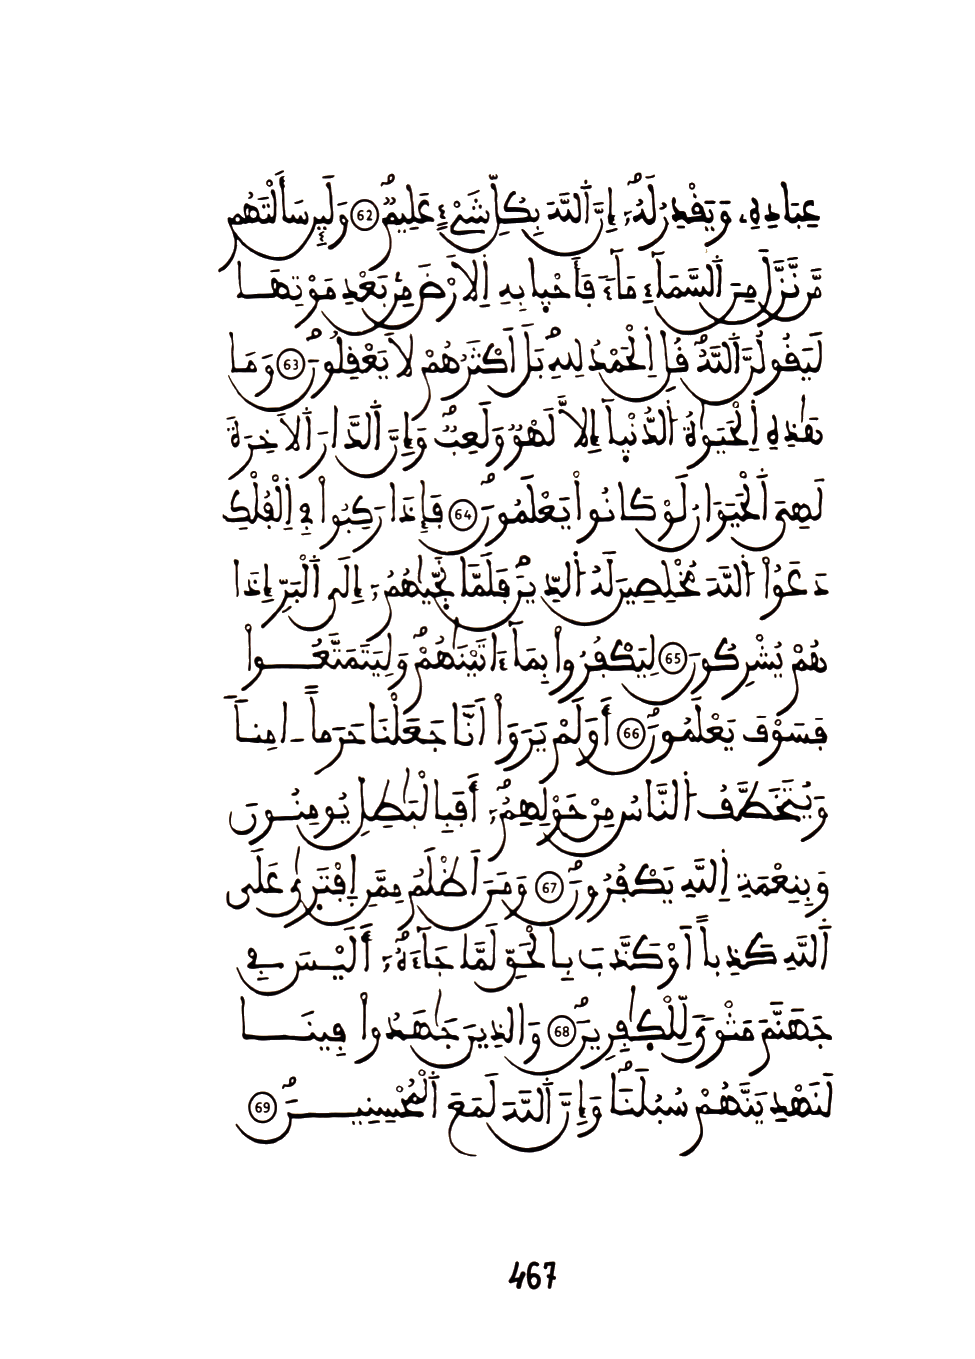 عِبَادِهِۦ وَيَقْدِرُ لَهُۥٓ إِنَّ اَ۬للَّهَ بِكُلِّ شَےْءٍ عَلِيمٞۖ 62 وَلَئِن سَأَلْتَهُم
مَّن نَّزَّلَ مِنَ اَ۬لسَّمَآءِ مَآءٗ فَأَحْيٜا بِهِ اِ۬لَارْضَ مِنۢ بَعْدِ مَوْتِهَا
لَيَقُولُنَّ اَ۬للَّهُۖ قُلِ اِ۬لْحَمْدُ لِلهِۖ بَلَ اَكْثَرُهُمْ لَا يَعْقِلُونَۖ 63 وَمَا
هَٰذِهِ اِ۬لْحَيَوٰةُ اُ۬لدُّنْيٜآ إِلَّا لَهْوٞ وَلَعِبٞۖ وَإِنَّ اَ۬لدَّارَ اَ۬لَاخِرَةَ
لَهِيَ اَ۬لْحَيَوَانُ لَوْ كَانُواْ يَعْلَمُونَۖ 64 فَإِذَا رَكِبُواْ فِے اِ۬لْفُلْكِ
دَعَوُاْ اُ۬للَّهَ مُخْلِصِينَ لَهُ اُ۬لدِّينَۖ فَلَمَّا نَجّ۪يٰهُمُۥٓ إِلَى اَ۬لْبَرِّ إِذَا
هُمْ يُشْرِكُونَ 65 لِيَكْفُرُواْ بِمَآ ءَاتَيْنَٰهُمْۖ وَلِيَتَمَتَّعُواْ
فَسَوْفَ يَعْلَمُونَۖ 66 أَوَلَمْ يَرَوَاْ اَنَّا جَعَلْنَا حَرَماً اٰمِناٗ
وَيُتَخَطَّفُ اُ۬لنَّاسُ مِنْ حَوْلِهِمُۥٓۖ أَفَبِالْبَٰطِلِ يُومِنُونَ
وَبِنِعْمَةِ اِ۬للَّهِ يَكْفُرُونَۖ 67 وَمَنَ اَظْلَمُ مِمَّنِ اِ۪فْتَر۪يٰ عَلَى
اَ۬للَّهِ كَذِباً اَوْ كَذَّبَ بِالْحَقِّ لَمَّا جَآءَهُۥٓۖ أَلَيْسَ فِے
جَهَنَّمَ مَثْويٗ لِّلْكٰٜفِرِينَۖ 68 وَالذِينَ جَٰهَدُواْ فِينَا
لَنَهْدِيَنَّهُمْ سُبُلَنَاۖ وَإِنَّ اَ۬للَّهَ لَمَعَ اَ۬لْمُحْسِنِينَۖ 69
467